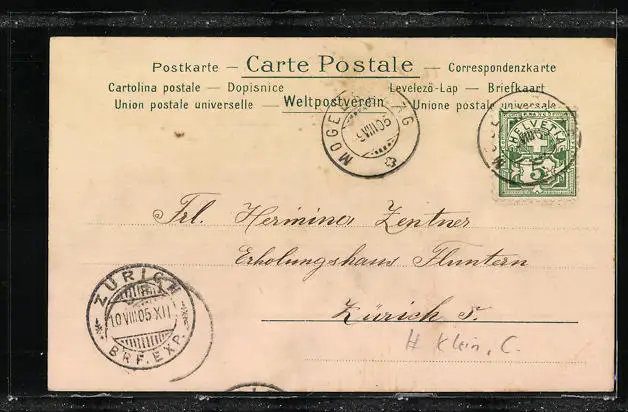 Postkarte — Carte Postale — Correspondenzkarte
Cartolina postale — Dopisnice Levelező-Lap — Briefkaart
Union postale universelle — Weltpostverein — Unione postale universale
HELVETIA
5
Frl. Hermine Zentner
Erholungshaus Fluntern
Zürich
ZÜRICH
10 VIII 05 XII
BRF. EXP.
Klein, C.